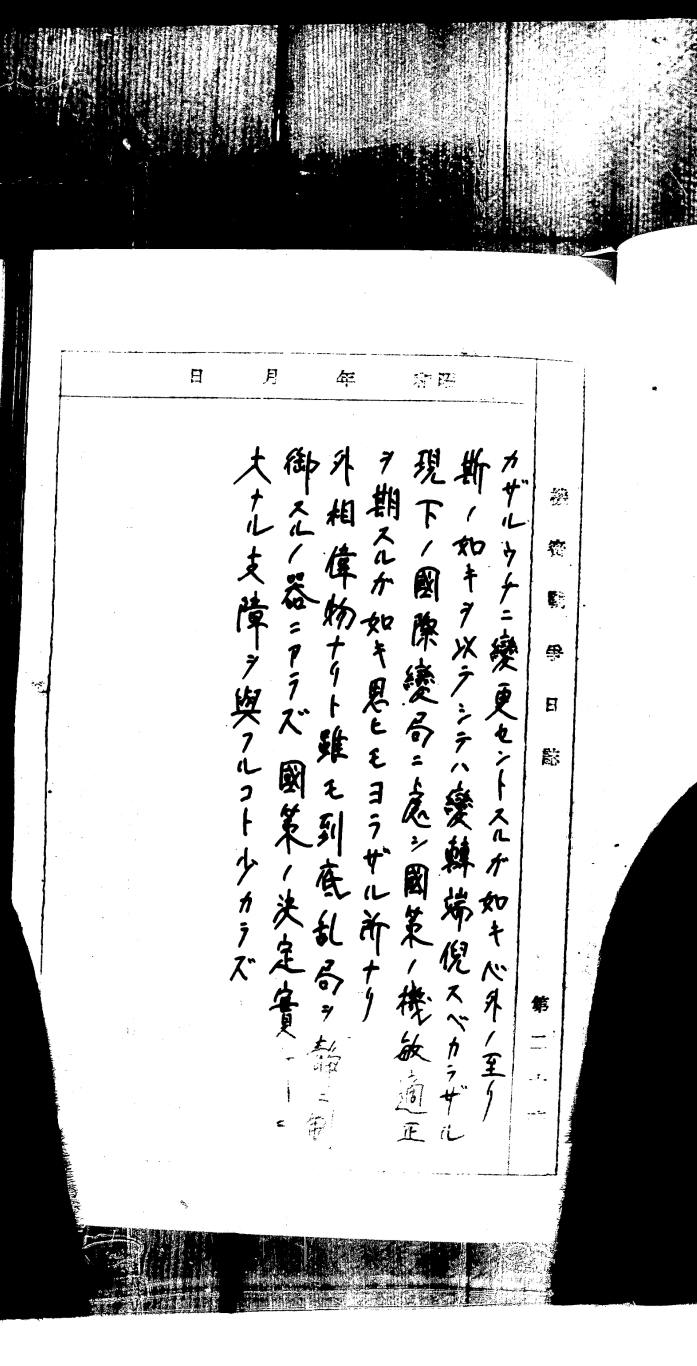 機密戰爭日誌
第二
昭和 年 月 日
カザルウチニ變更セントスルガ如キ心外ノ至リ
斯ノ如キヲ以テシテハ變轉端倪スベカラザル
現下ノ國際變局ニ處シ國策ノ機敏適正
ヲ期スルガ如キ思ヒモヨラザル所ナリ
外相偉物ナリト雖モ到底乱局ヲ靜ニ制
御スルノ器ニアラズ 國策ノ決定實
大ナル支障ヲ與フルコト少カラズ